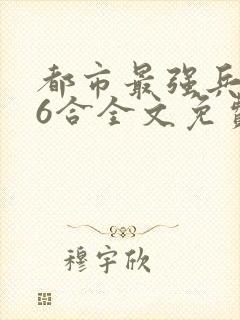 都市最强兵
6合全文免费
穆宇欣